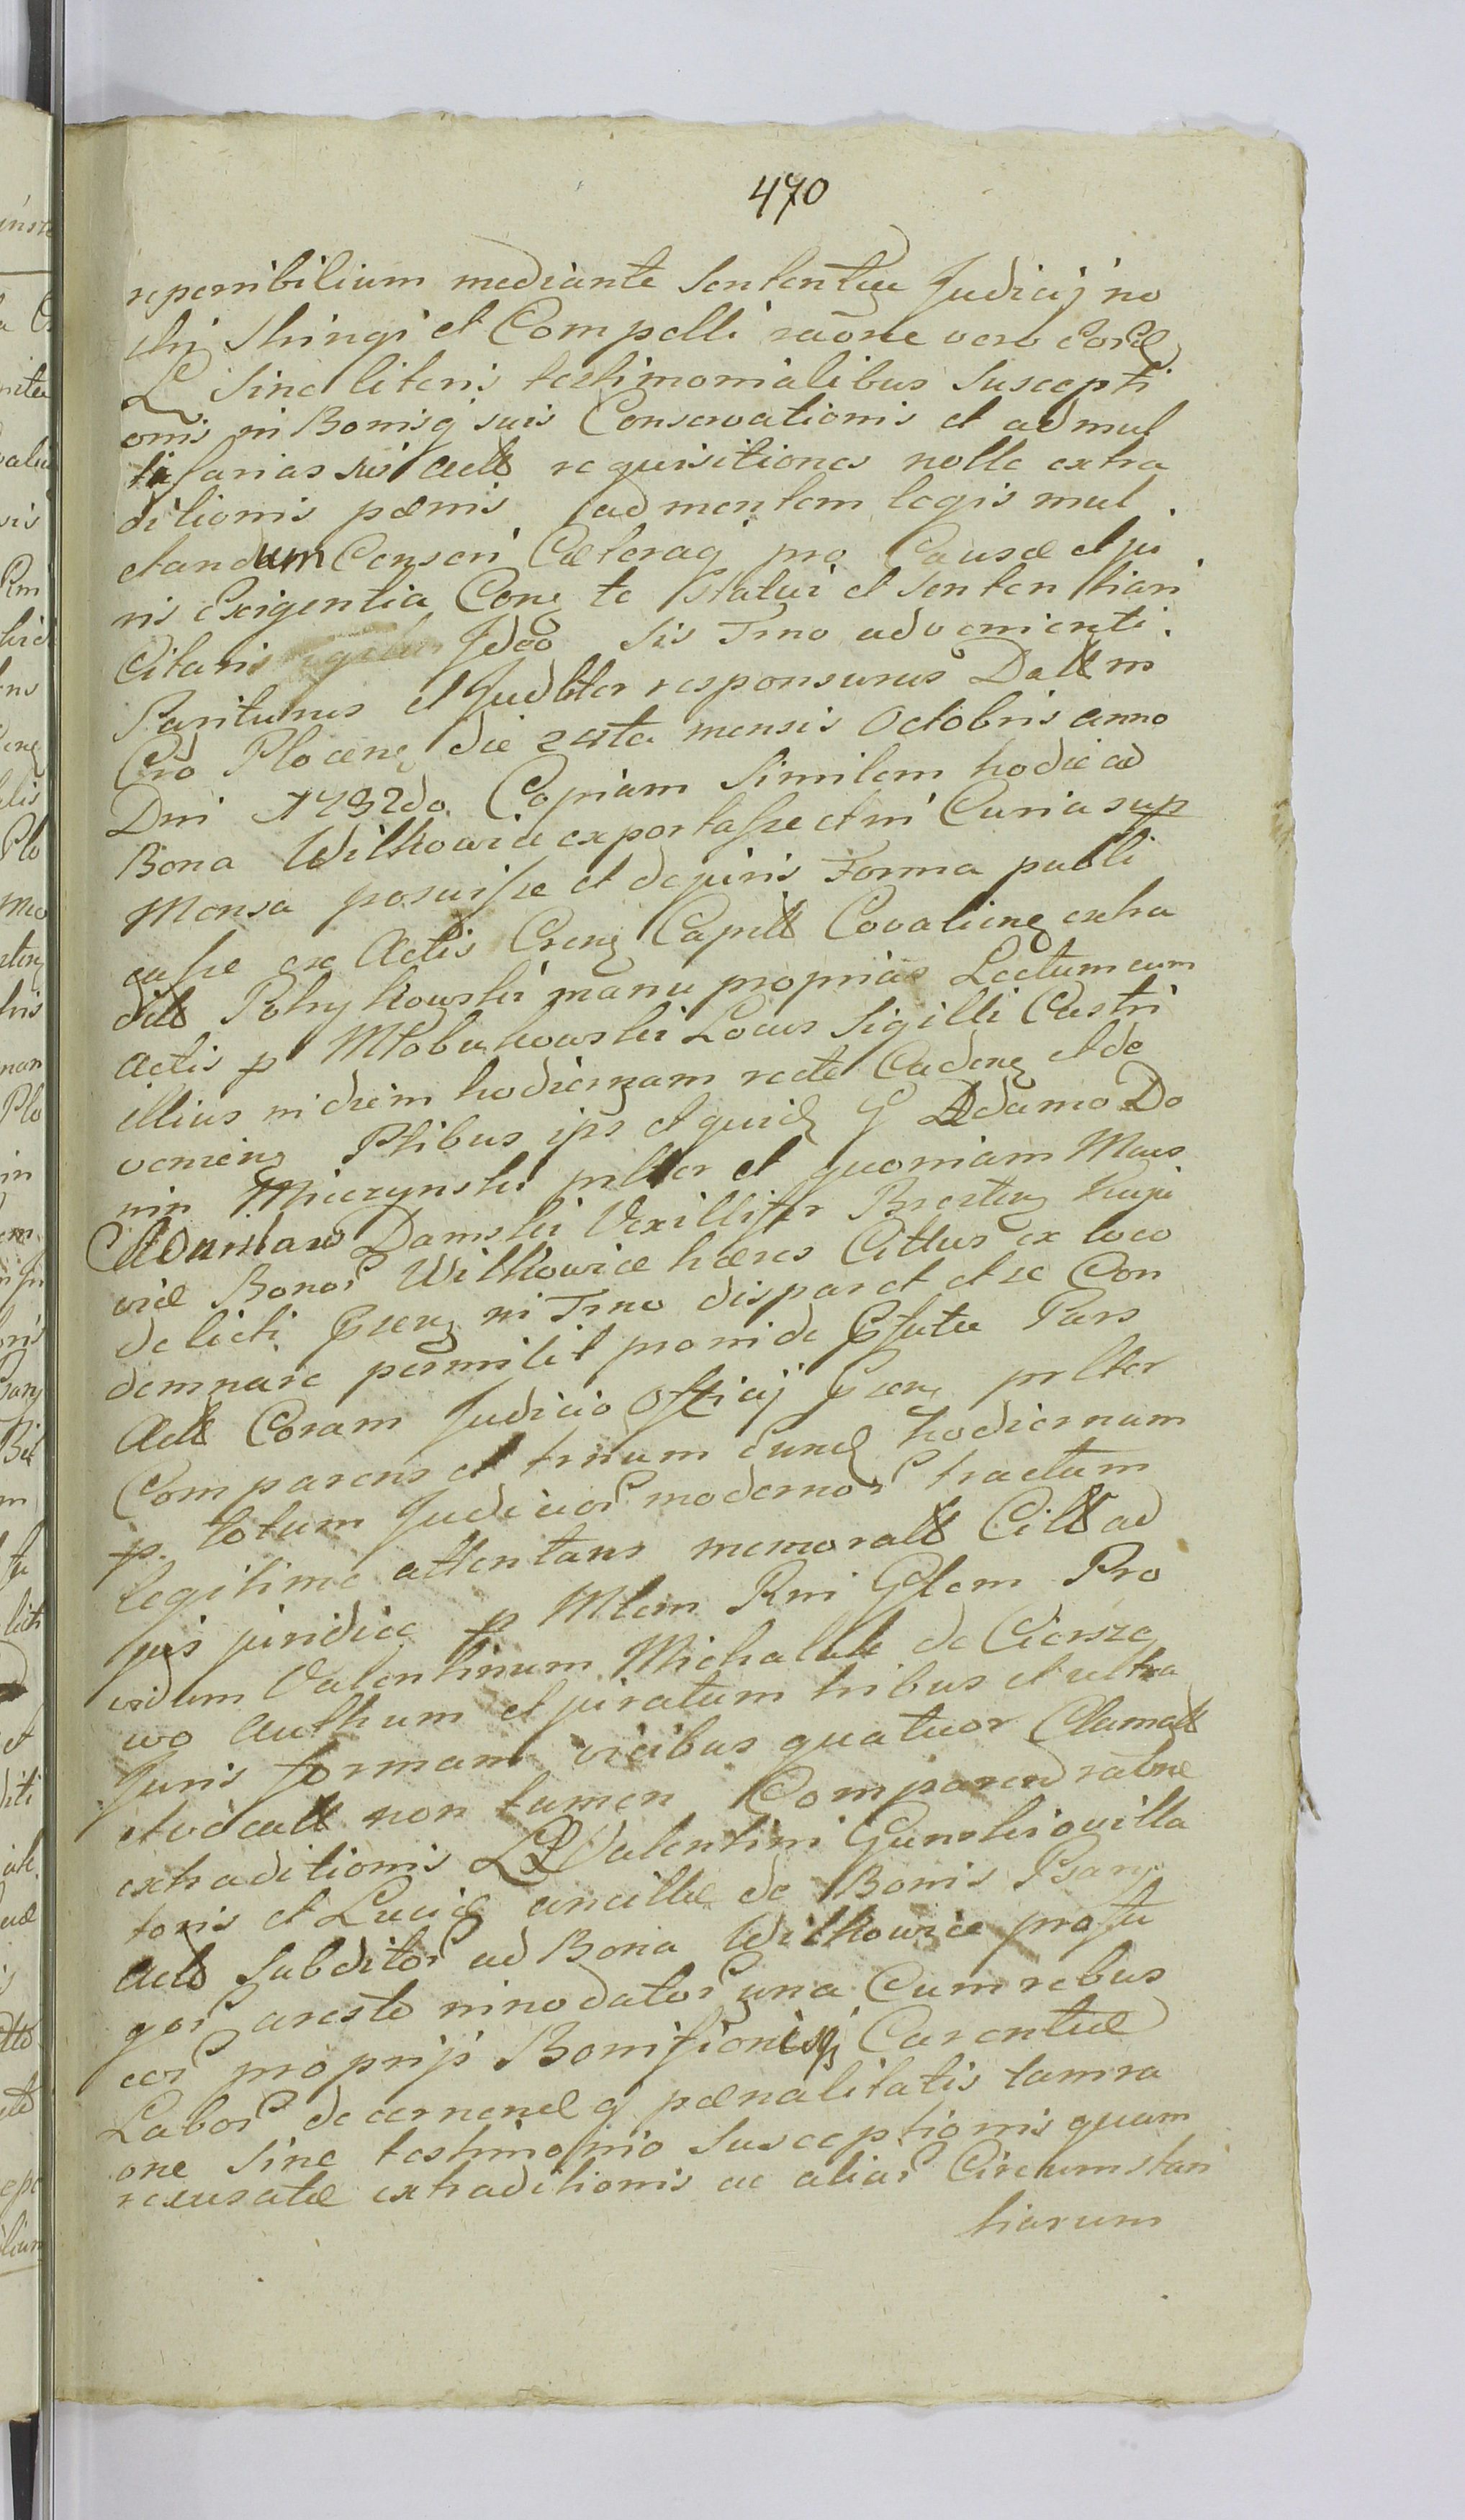 470
reponibilium mediante Sententia Judicij no
stri Stringi et Compelli raõne vero eord
L Sine literis testimonialibus Suscepti
onis in Bonisq suis Conservationis et ad mul
tifarias sui actt requisitiones nolle extra
ditionis pœnis ad mentem legis mul
ctandum Censeri Cæteraq pro Causæ et ju
ris Exigentia Cong te Statui et Sententiari
Citaris Jdeo Sis Trno advenienti
Pariturus et Judltter responsurus Datt in
Cro Plocen die 24ta mensis Octobris anno
Dni 1792do Copiam Similem hodie ad
Bona Wilkowice exportasse et in Curia sup
Mensa posuisse et de juris Forma publi
casse ex Actis Cren Capitt Covalien extra
ditt Potrykowski manu propria Lectum cum
Actis p Młobukowski Locus Sigilli Castri
illius in diem hodiernam recte Cadens et de
veniens Ptibus ips et quid G Adamo Do
min Mieczynski pnltter et quoniam Mcus
Adamlaus Damski Vexillifer Bresten Kuja
viæ Bonor Wilkowice hæres Cittus ex loco
delicti Gsens in Trno disparet et se Con
demnare permitit proinde Gsuta Pars
Actt Coram Judicio Officij Gsen pnltter
Comparens et trnum eund hodiernum
p. totum Judicior modernor tractum
legitime attentans memoratt Citt ad
jus juridice p Mtem Rni Glem Pro
vidum Valentinum Michalak de Ciersze
wo Authum et juratum tribus et ultra
Juris formam vicibus quatuor Clamatt
et vocatt non tamen Comparen ratne
extraditionis LL Valentini Gunski ovilla
toris et Luciæ ancillæ de Bonis Gsang
Actt Subditor ad Bona Wilkowice profu
gor aresto innodator una Cum rebus
eor proprijs Bonifionisq Carentiæ
Labor decernenæ q pœnalitatis tam ra
one Sine testimonio Susceptionis quam
recusatæ extraditionis ac aliar Circumstan
tiarum